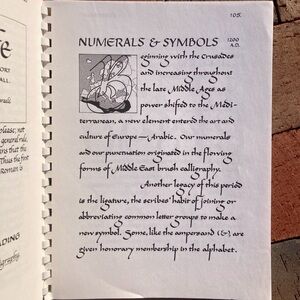 105.
NUMERALS & SYMBOLS 1200 A.D.
eginning with the Crusades
and increasing throughout
the late Middle Ages as
power shifted to the Medi-
terranean, a new element entered the art and
culture of Europe — Arabic. Our numerals
and our punctuation originated in the flowing
forms of Middle East brush calligraphy.
Another legacy of this period
is the ligature, the scribes' habit of joining or
abbreviating common letter groups to make a
new symbol. Some, like the ampersand (&) are
given honorary membership in the alphabet.
ORT
ALL.
please; not
general rule,
ins that the
Thus the first
Roman is
DING
igraphy